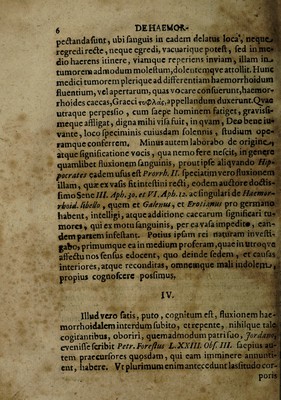 6 DE HAEMOR-
pectanda sunt, ubi sanguis in eadem delatus loca, neque
regredi recte, neque egredi, vacuarique potest, sed in me-
dio haerens itinere, viamque reperiens inviam, illam in
tumorem admodum molestum, dolentemqve attollit. Hunc
medici tumorem plerique ad differentiam haemorrhoidum
fluentium, vel apertarum, quas vocare consueverunt, haemor-
rhoides caecas, Graeci τυφλὰς, appellandum duxerunt. Qvae
utraque perpessio, cum saepe hominem fatiget, gravissi-
meque affligat, digna mihi visa fuit, in qvam, Deo bene iu-
vante, loco speciminis cuiusdam solennis, studium ope-
ramque conferrem. Minus autem laborabo de origine,
atque significatione vocis, qua nemo fere nescit, in genere
quamlibet fluxionem sanguinis, prout ipse aliqvando Hip-
pocrates eadem usus est Prorrh. II. speciatim vero fluxionem
illam, quae ex vasis fit intestini recti, eodem auctore doctis-
simo Sene III. Aph. 30. et VI. Aph. 12. ac singulari de Haemor-
rhoid. libello, quem et Galenus, et Erotianus pro germano
habent, intelligi, atque addictione caecarum significari tu-
mores, qui ex motu sanguinis, per ea vasa impedito, ean-
dem partem infestant. Potius ipsam rei naturam investi-
gabo, primumque ea in medium proferam, quae in utroqve
affectu nos sensus edocent, quo deinde sedem, et causas
interiores, atque reconditas, omnemque mali indolem,
propius cognoscere possimus.
IV.
Illud vero satis, puto, cognitum est, fluxionem hae-
morrhoidalem interdum subito, et repente, nihilque tale
cogitantibus, oboriri, quemadmodum patri suo, Jordano,
evenisse scribit Petr. Forestus L. XXIII. Obs. III. saepius au-
tem praecursores quosdam, qui eam imminere annunti-
ent, habere. Ut plurimum enim antecedunt lassitudo cor-
poris